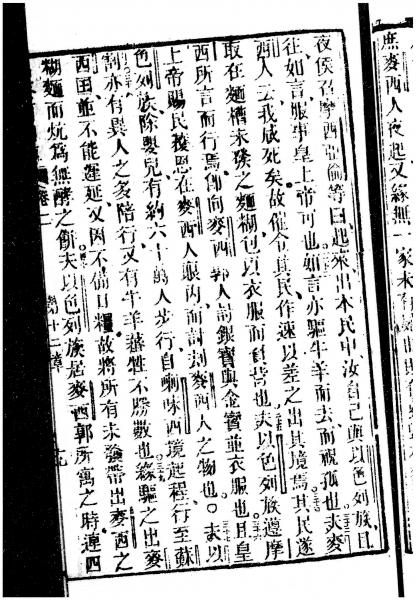 庶麥西人夜起又緣無一家未
夜侯召摩西亞倫等曰起來出本民中汝自己與以色列族且
徃如言服事皇上帝可也如言亦驅牛羊而去而祝我也夫麥
西人云我咸死矣故催令其民作速以差之出其境焉其民遂
取在麵槽未發之麵糊包以衣服而負背也夫以色列族遵摩
西所言而行焉即向麥西郭人討銀寶與金寶並衣服也且皇
上帝賜民獲恩在麥西人眼內而討刦麥西人之物也夫以
色列族除嬰兒有約六十萬人步行自喇味西境起程行至蘇
割亦有異人之多陪行又有牛羊孳牲不勝數也緣驅之出麥
西田並不能遲延又因不備口糧故將所有未發帶出麥西之
糊麵而炕為無酵之餅夫以色列族居麥西郭所寓之時連四
卷二 第十二章